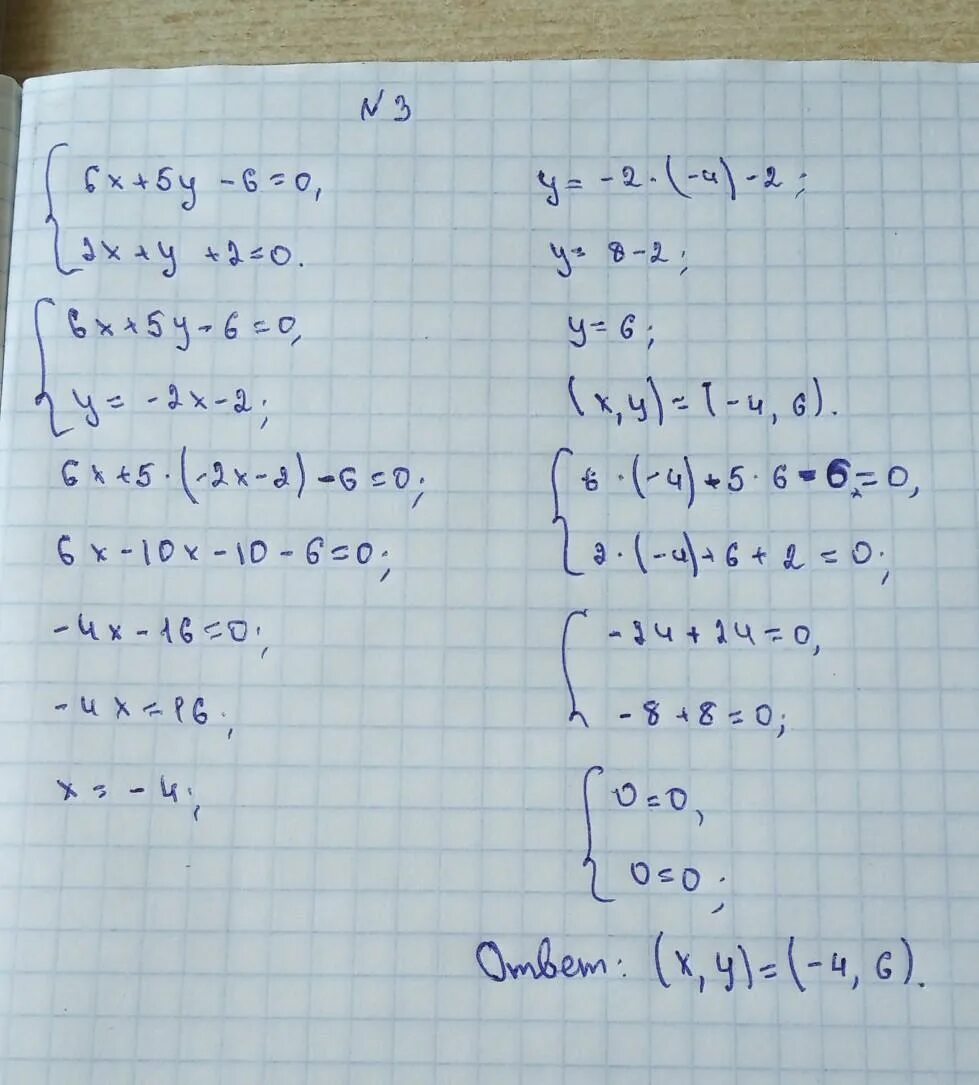 N 3
6x+5y-6=0,
2x+y+2=0.
6x+5y-6=0,
y=-2x-2;
6x+5·(-2x-2)-6=0;
6x-10x-10-6=0;
-4x-16=0;
-4x=16;
x=-4;
y=-2·(-4)-2;
y=8-2;
y=6;
(x,y)=(-4,6).
6·(-4)+5·6-6=0,
2·(-4)+6+2=0;
-24+24=0,
-8+8=0;
0=0,
0=0;
Ответ: (x,y)=(-4,6).